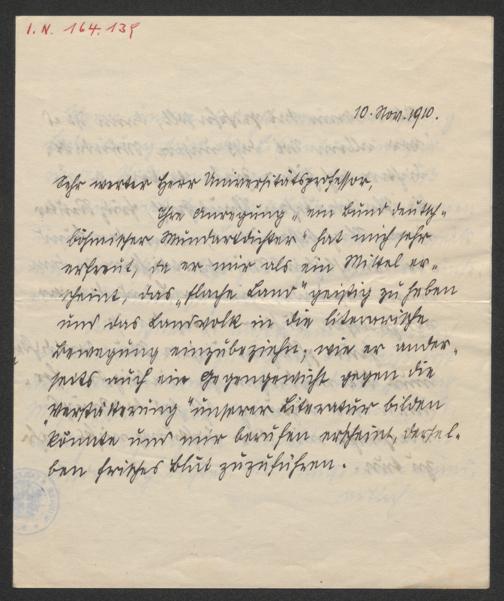 I.N. 164.139
10. Nov. 1910.
Sehr werter Herr Universitätsprofessor,
Ihre Anregung „ein Bund deutsch-
böhmischer Mundartdichter" hat mich sehr
erfreut, da er mir als ein Mittel er-
scheint, das „flache Land" geistig zu heben
und das Landvolk in die literarische
Bewegung einzubeziehn, wie er ander-
seits auch ein Gegengewicht gegen die
„Verstädterung" unserer Literatur bilden
könnte und mir berufen erscheint, dersel-
ben frisches Blut zuzuführen.